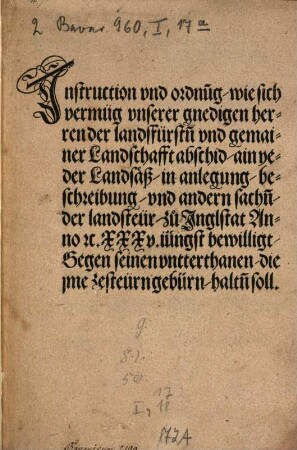 2 Bavar. 960, I, 17 a
Instruction vnd ordnūg wie sich
vermüg vnserer gnedigen her-
ren der landsfürstn̄ vnd gemai-
ner Landschafft abschid ain ye-
der Landsäß in anlegung be-
schreibung vnd andern sachn̄
der landsteür zů Inglstat An-
no ⁊c. XXXv. iüngst bewilligt
Gegen seinen vntterthanen die
jme zesteürn gebürn haltn̄ soll.
9.
17
I, 18
172A